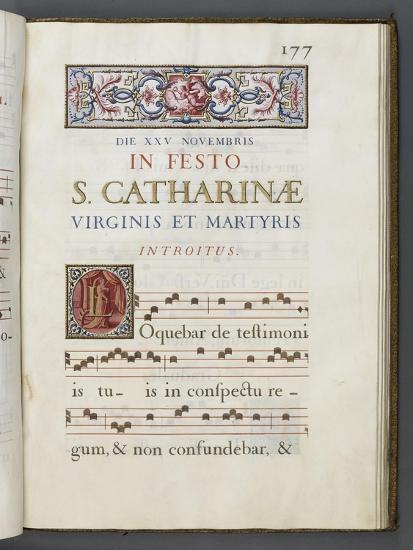 177
DIE XXV NOVEMBRIS
IN FESTO
S. CATHARINÆ
VIRGINIS ET MARTYRIS
INTROITUS.
LOquebar de teſtimoni
is tu– is in conſpectu re –
gum, & non confundebar, &
&
o-